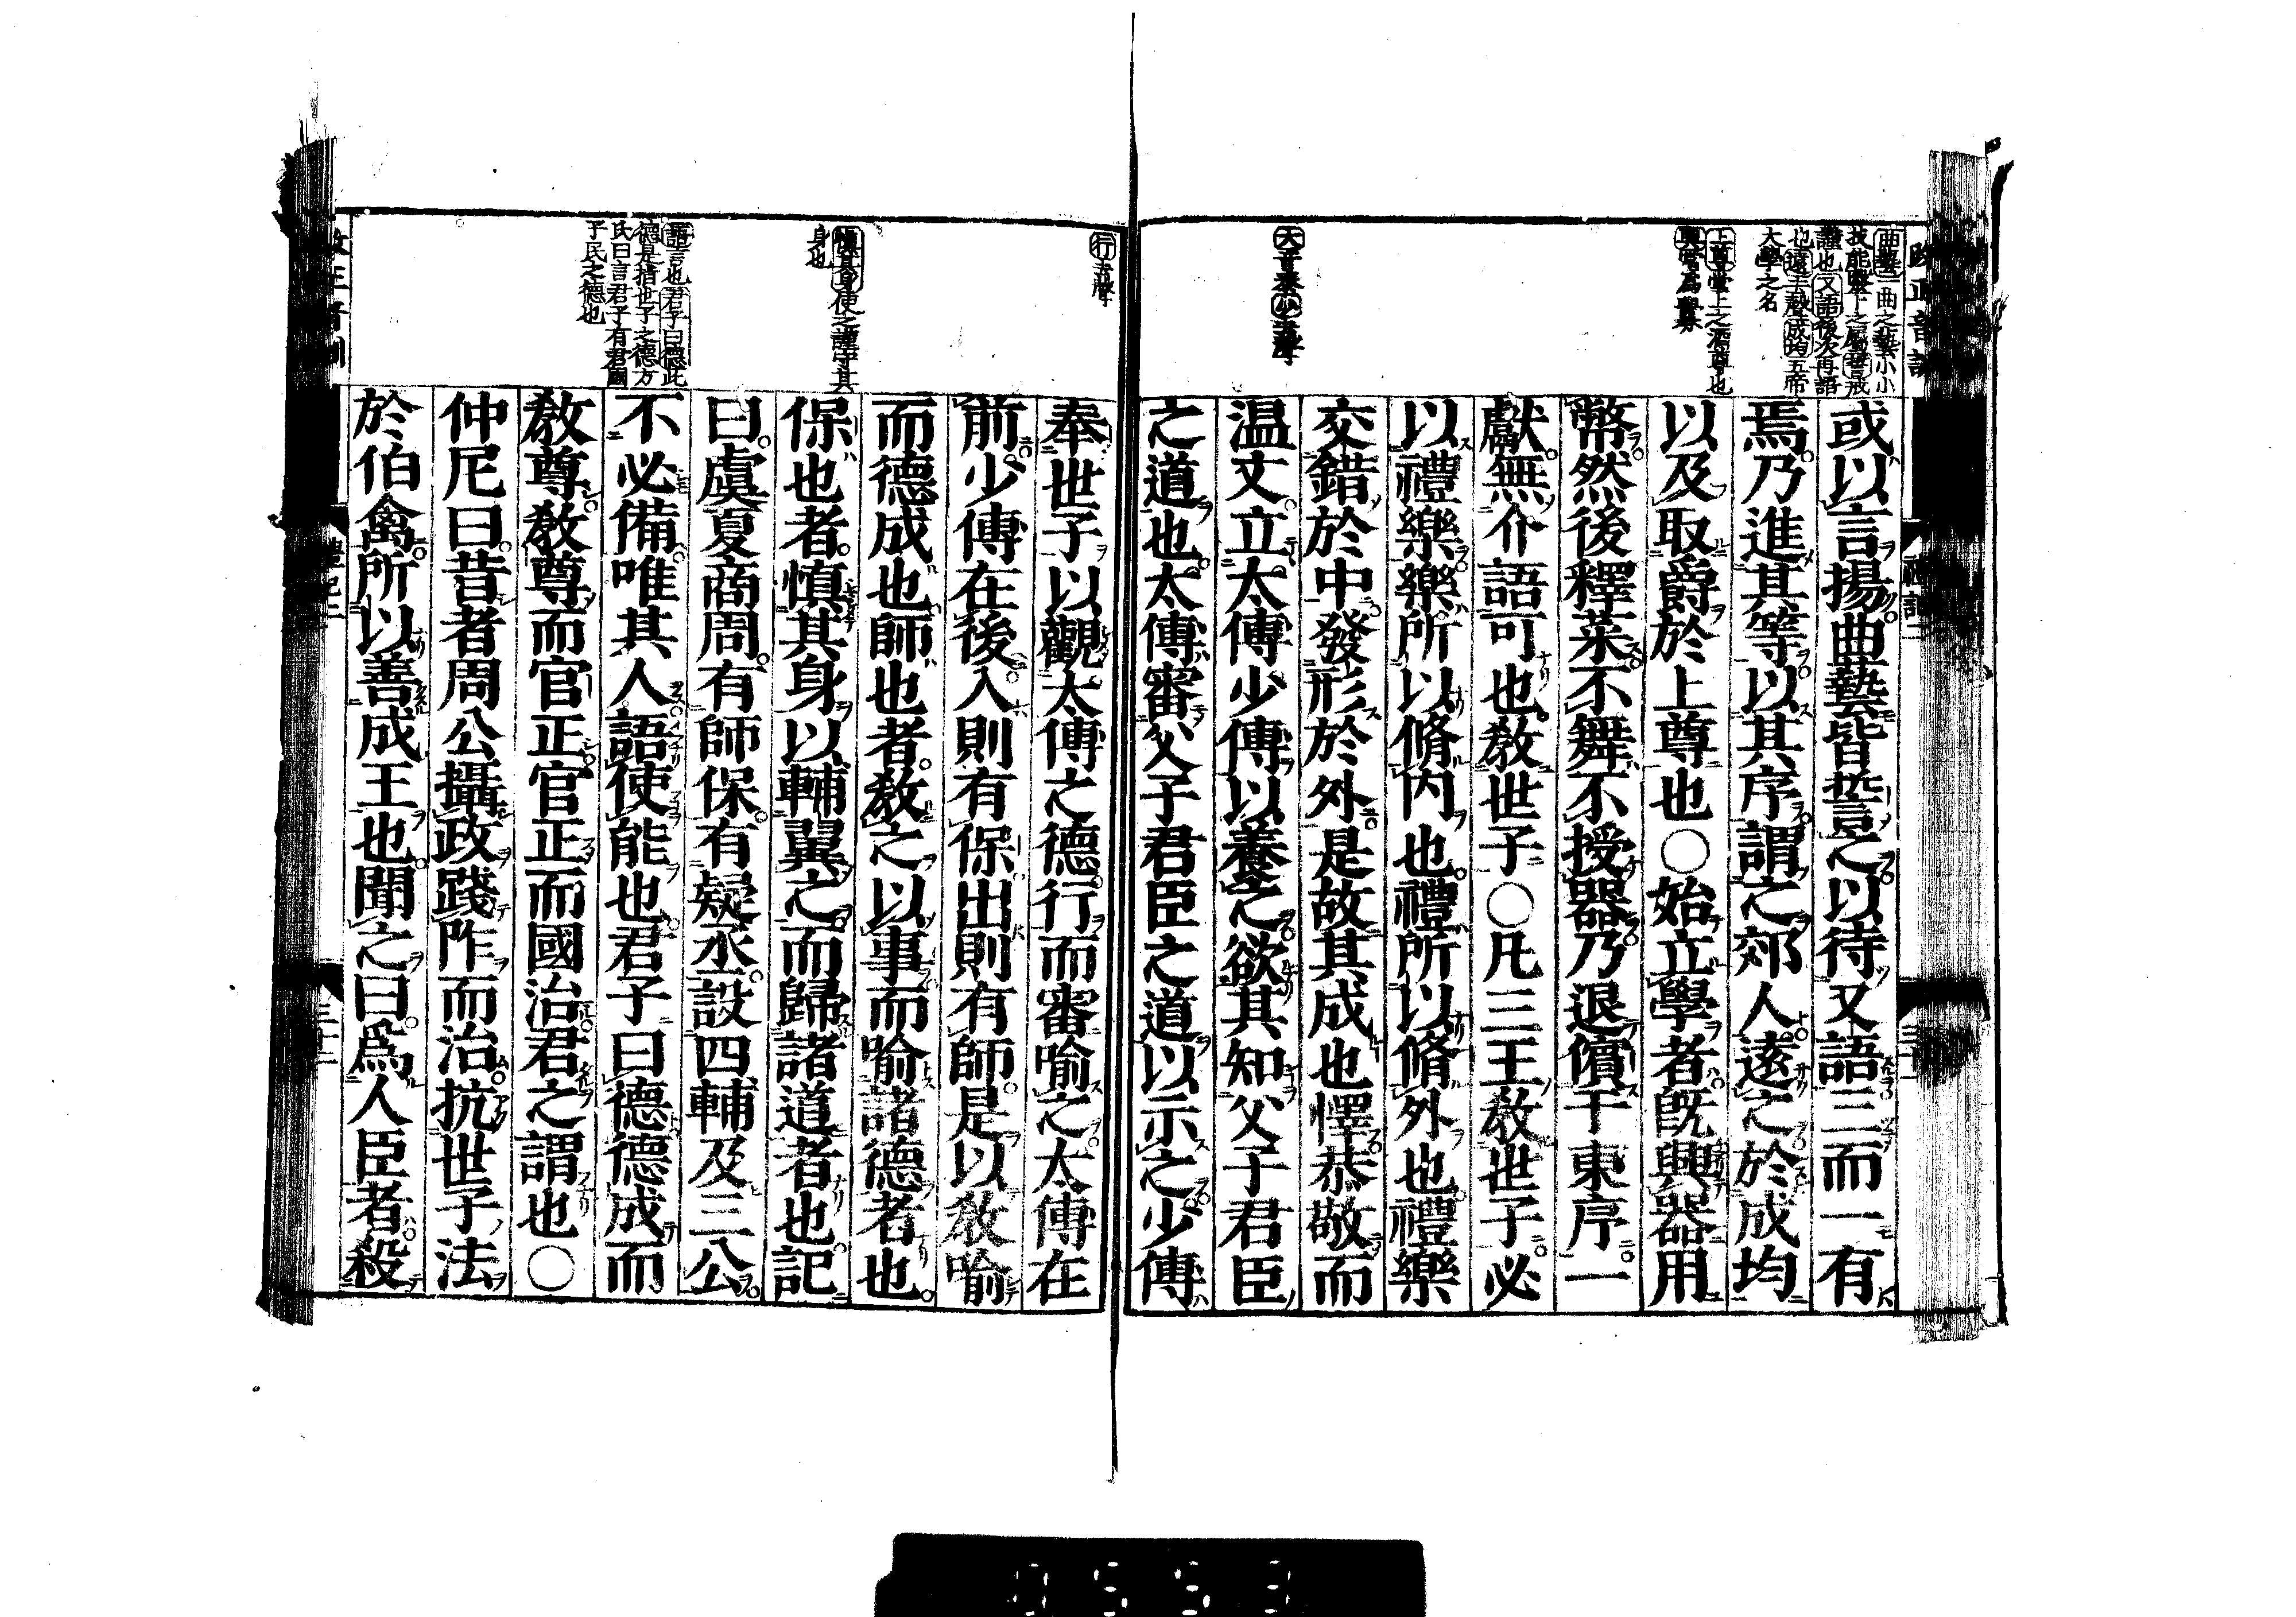 曲藝一曲之藝小小
技能醫卜之屬誓戒
謹也又語後次再語
也遠去聲成均五帝
大學之名
上尊堂上之酒尊也
興當爲釁
大音泰少去聲
或以言揚曲藝皆誓之以待又語三而一有
焉乃進其等以其序謂之郊人遠之於成均
以及取爵於上尊也〇始立學者既興器用
幣然後釋菜不舞不授器乃退儐于東序一
獻無介語可也教世子〇凡三王教世子必
以禮樂樂所以脩內也禮所以脩外也禮樂
交錯於中發形於外是故其成也懌恭敬而
温文立太傅少傅以養之欲其知父子君臣
之道也太傅審父子君臣之道以示之少傅
行去聲
慎其身使之謹守其
身也
語言也君子曰德此
德是指世子之德方
氏曰言君子有君國
子民之德也
奉世子以觀太傅之德行而審喻之太傅在
前少傅在後入則有保出則有師是以教喻
而德成也師也者教之以事而喻諸德者也
保也者慎其身以輔翼之而歸諸道者也記
曰虞夏商周有師保有疑丞設四輔及三公
不必備唯其人語使能也君子曰德德成而
教尊教尊而官正官正而國治君之謂也〇
仲尼曰昔者周公攝政踐阼而治抗世子法
於伯禽所以善成王也聞之曰爲人臣者殺